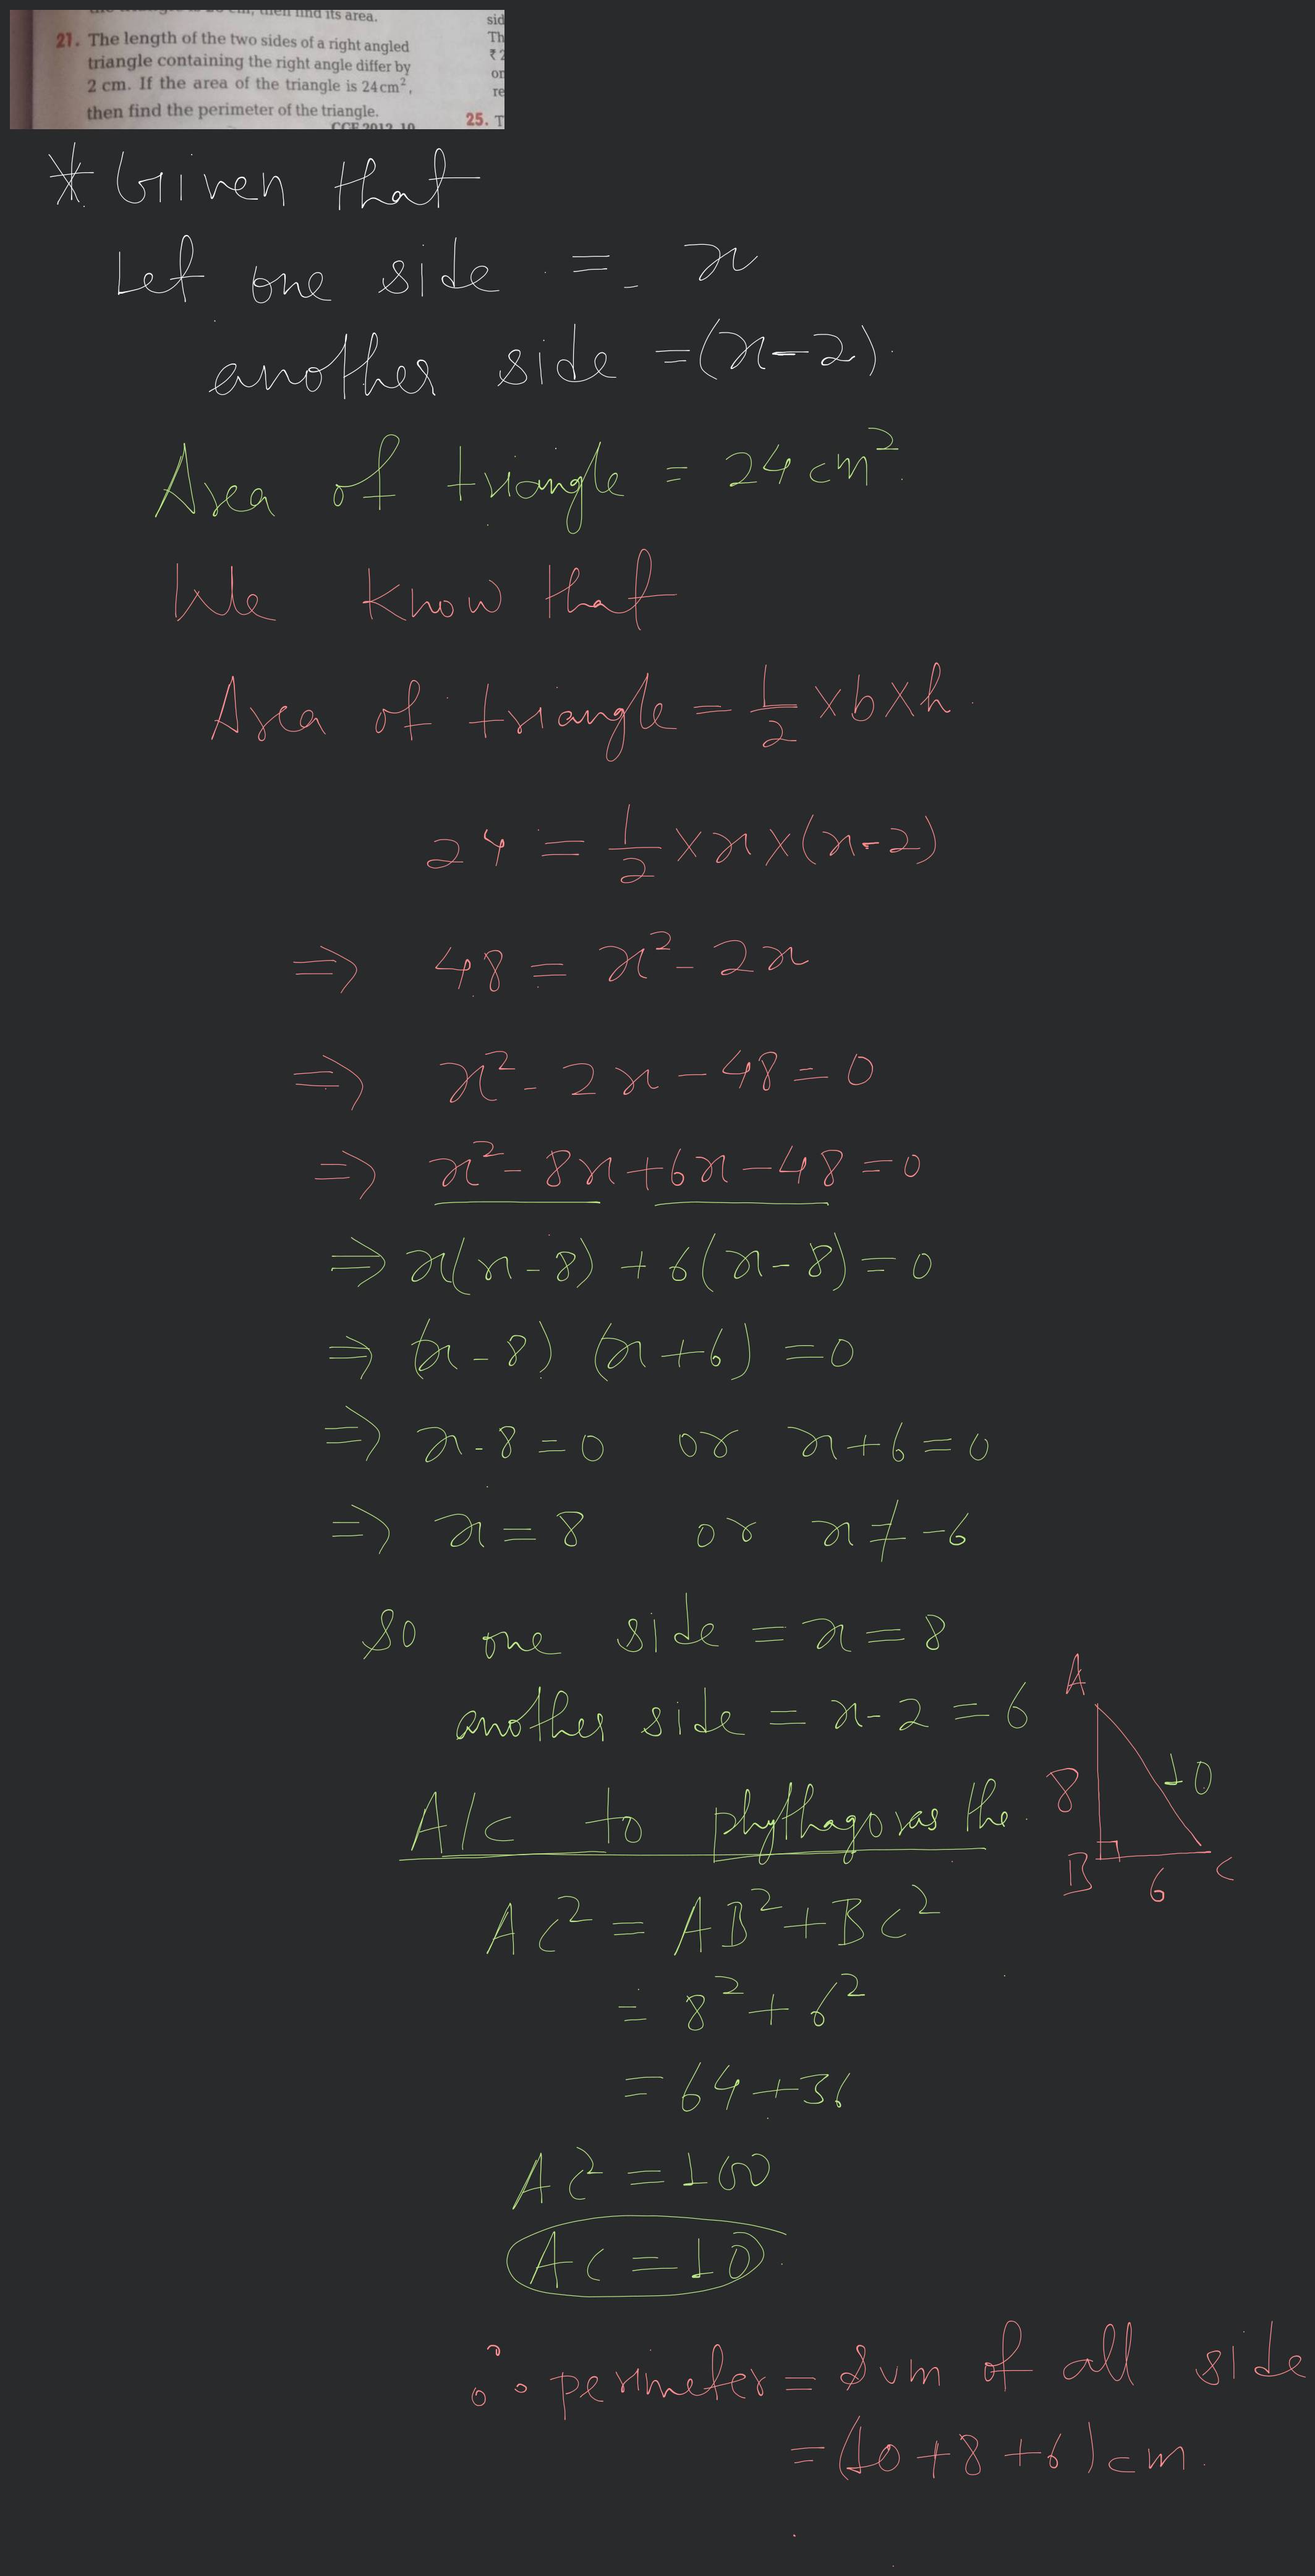 then find its area.
21. The length of the two sides of a right angled
triangle containing the right angle differ by
2 cm. If the area of the triangle is 24 cm²,
then find the perimeter of the triangle.
CCE 2012, 10
sid
Th
₹2
or
re
25. T
* Given that
Let one side = x
another side = (x-2)
Area of triangle = 24 cm².
We know that
Area of triangle = 1/2 × b × h.
24 = 1/2 × x × (x-2)
⇒ 48 = x² - 2x
⇒ x² - 2x - 48 = 0
⇒ x² - 8x + 6x - 48 = 0
⇒ x(x-8) + 6(x-8) = 0
⇒ (x-8) (x+6) = 0
⇒ x-8 = 0 or x+6 = 0
⇒ x = 8 or x ≠ -6
So one side = x = 8
another side = x-2 = 6
A/c to phythagoras the.
A
8
10
B
6
C
AC² = AB² + BC²
= 8² + 6²
= 64 + 36
AC² = 100
AC = 10
∴ perimeter = Sum of all side
= (10+8+6) cm.